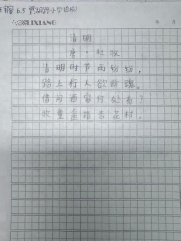 IXIANG
清明
唐·杜牧
清明时节雨纷纷，
路上行人欲断魂。
借问酒家何处有
牧童遥指杏花村。